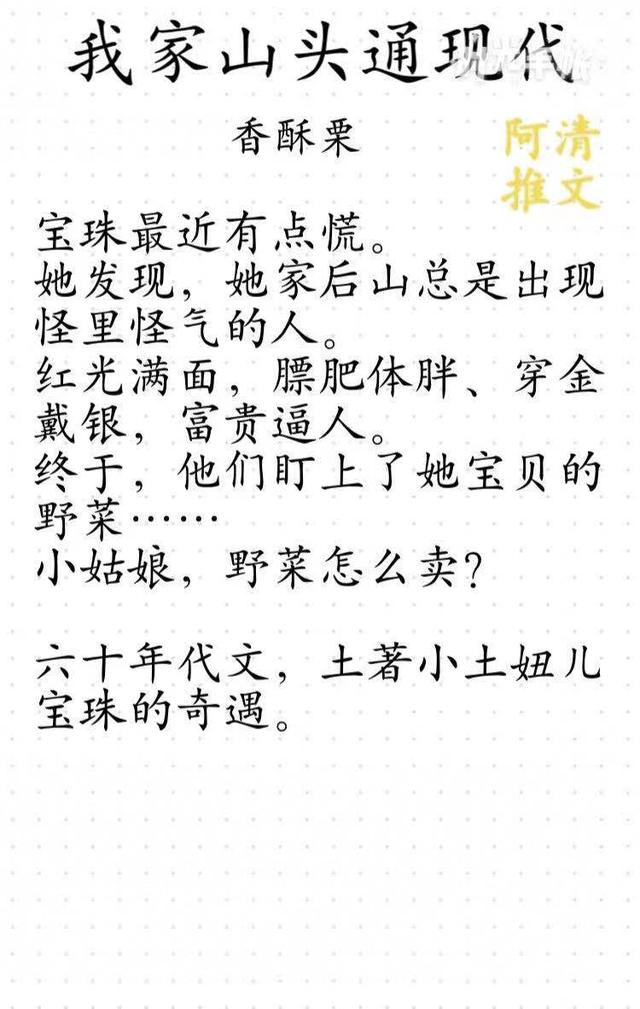 我家山头通现代
香酥栗
阿清
推文
宝珠最近有点慌。
她发现，她家后山总是出现
怪里怪气的人。
红光满面，膘肥体胖、穿金
戴银，富贵逼人。
终于，他们盯上了她宝贝的
野菜……
小姑娘，野菜怎么卖？
六十年代文，土著小土妞儿
宝珠的奇遇。